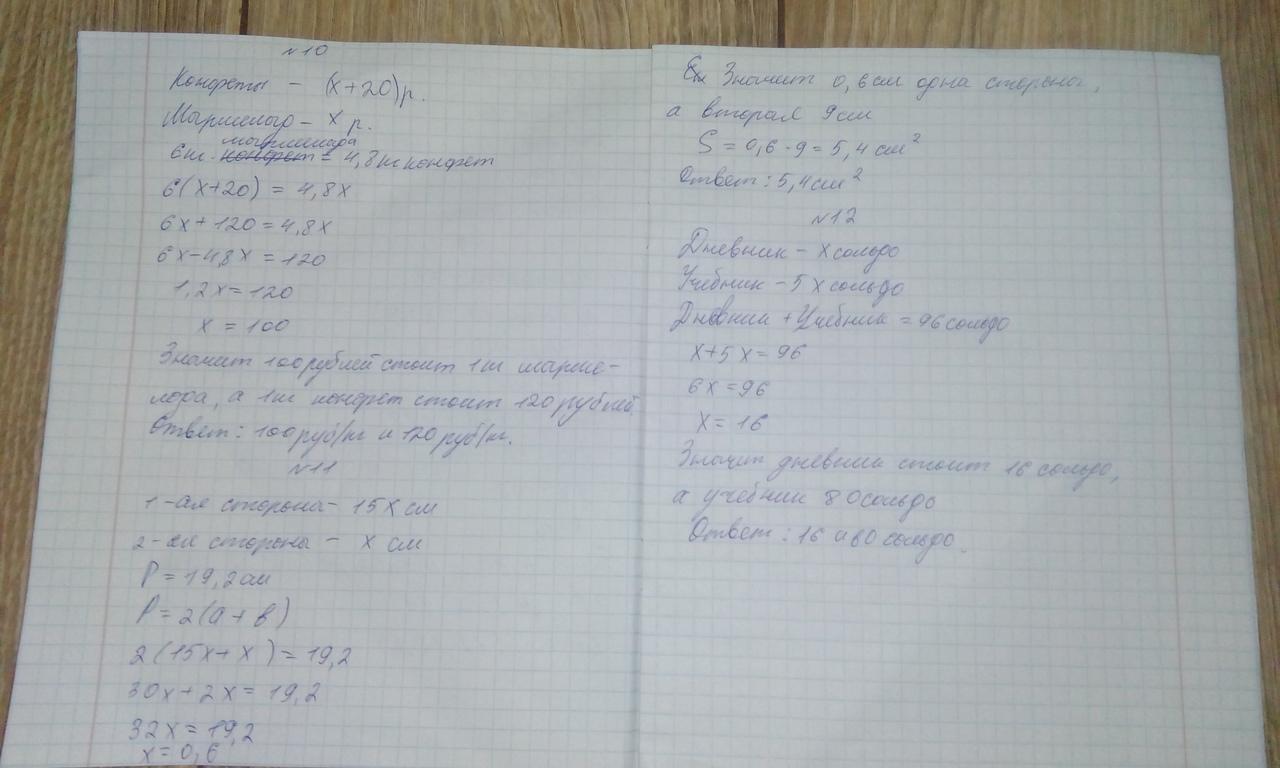 №10
Конфеты - (x+20) р.
Мармелад - x р.
мармелада
6кг. конфет = 4,8 кг конфет
6(x+20) = 4,8x
6x+120=4,8x
6x-4,8x=120
1,2x=120
x=100
Значит 100 рублей стоит 1кг марме-
лада, а 1кг конфет стоит 120 рублей.
Ответ: 100 руб/кг и 120 руб/кг.
№11
1-ая сторона - 15x см
2-ая сторона - x см
P=19,2см
P=2(a+b)
2(15x+x)=19,2
30x+2x=19,2
32x=19,2
x=0,6
Значит 0,6см одна сторона,
а вторая 9см
S=0,6·9=5,4 см²
Ответ: 5,4см²
№12
Дневник - x сольдо
Учебник - 5x сольдо
Дневник + Учебник = 96 сольдо
x+5x=96
6x=96
x=16
Значит дневник стоит 16 сольдо,
а учебник 80 сольдо
Ответ: 16 и 80 сольдо.